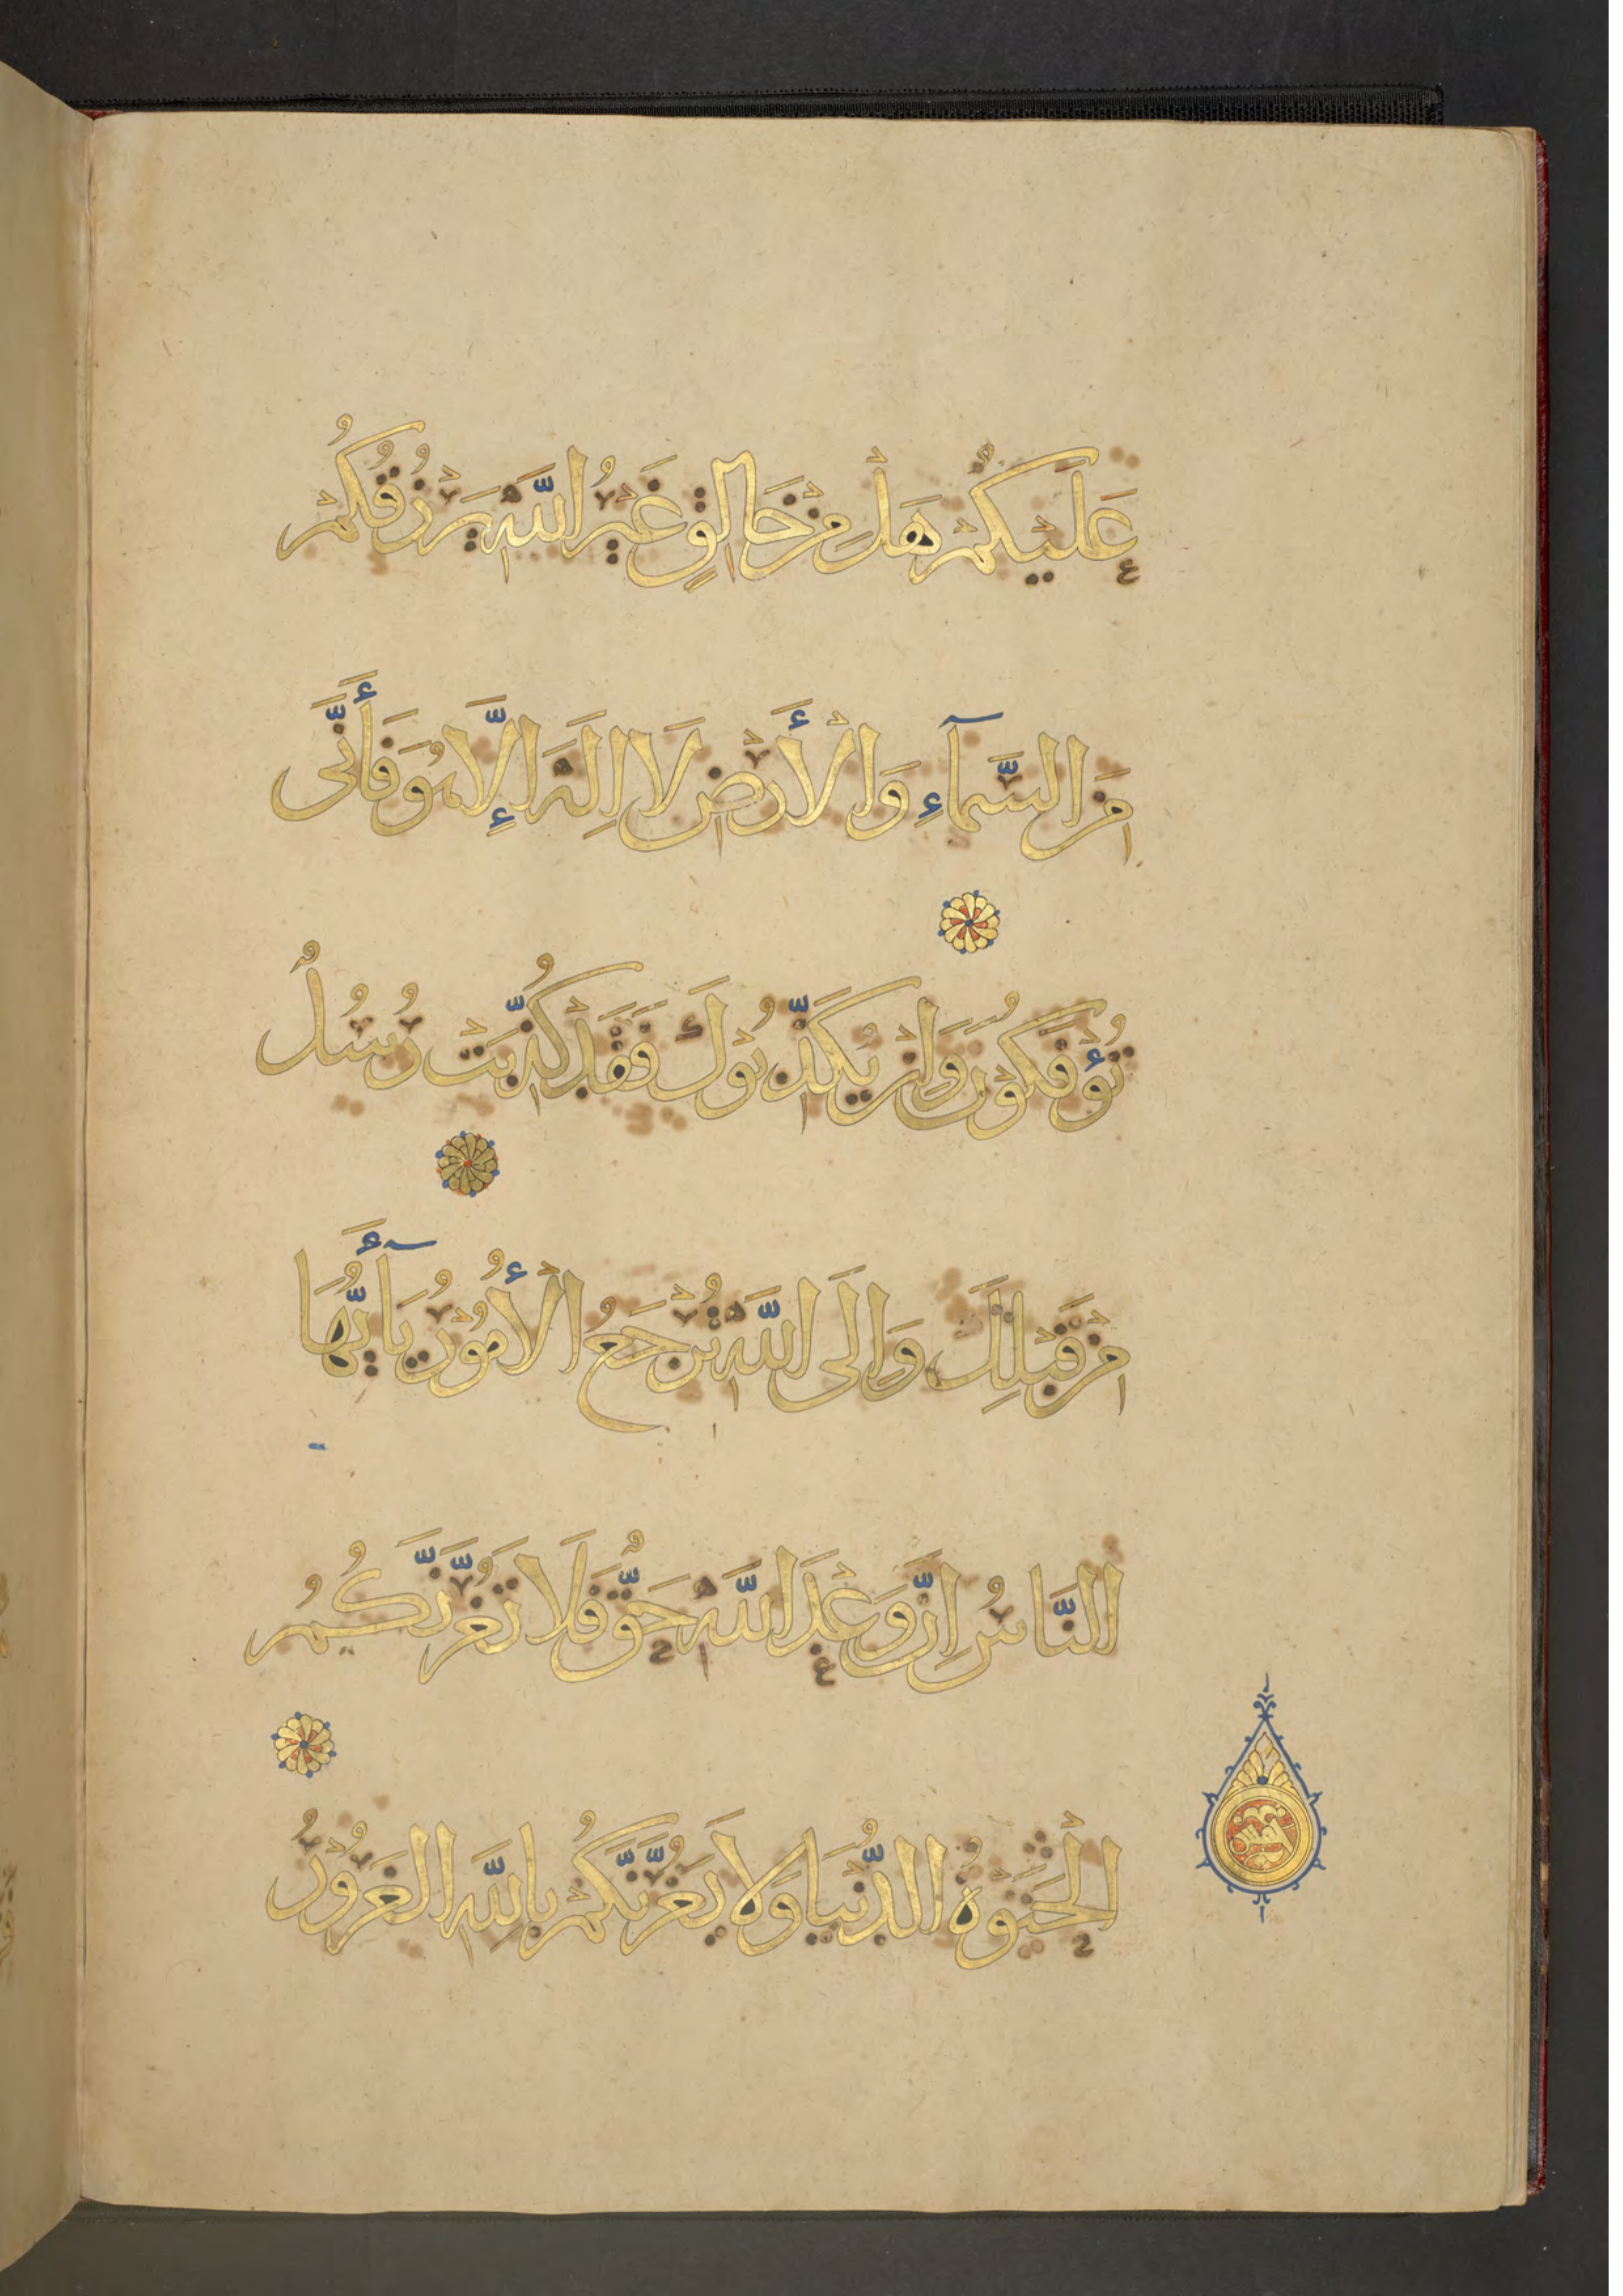 عَلَيْكُمْ هَلْ مِنْ خَالِقٍ غَيْرُ اللَّهِ يَرْزُقُكُمْ
مِنَ السَّمَآءِ وَالْأَرْضِ لَا اِلَهَ إِلَّا هُوَ فَأَنَّى
تُؤْفَكُوْنَ وَاِنْ يُكَذِّبُوْكَ فَقَدْ كُذِّبَتْ رُسُلٌ
مِنْ قَبْلِكَ وَاِلَى اللَّهِ تُرْجَعُ الْأُمُوْرُ يَآأَيُّهَا
النَّاسُ اِنَّ وَعْدَ اللَّهِ حَقٌّ فَلَا تَغُرَّنَّكُمُ
الْحَيَوةُ الدُّنْيَا وَلَا يَغُرَّنَّكُمْ بِاللَّهِ الْغَرُوْرُ